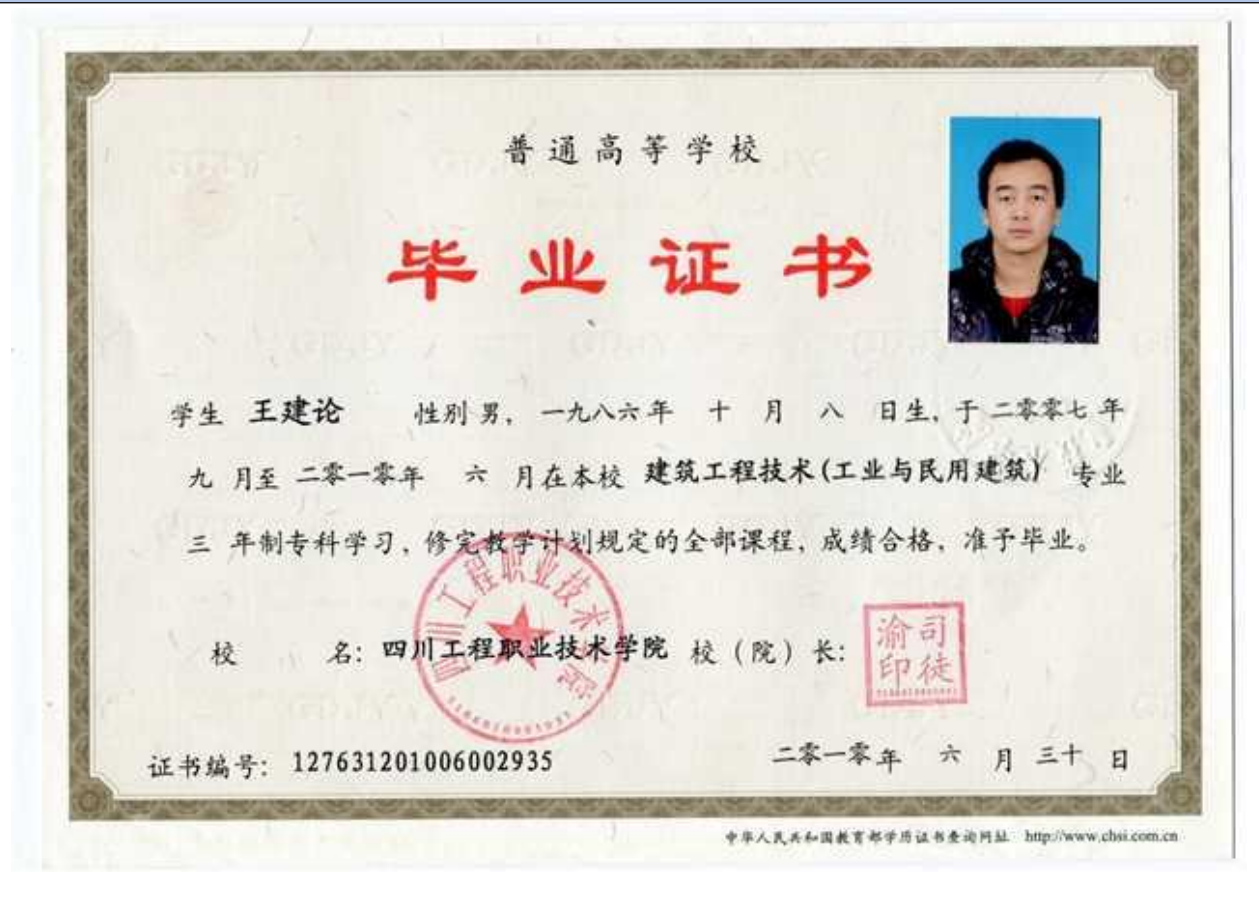 普通高等学校
毕业证书
学生 王建论 性别 男, 一九八六年 十 月 八 日生, 于 二零零七 年
九 月至 二零一零年 六 月在本校 建筑工程技术(工业与民用建筑) 专业
三 年制专科学习, 修完教学计划规定的全部课程, 成绩合格, 准予毕业。
四川工程职业技术学院
校 名: 四川工程职业技术学院 校(院)长:
司徒渝印
证书编号: 127631201006002935 二零一零年 六 月 三十 日
中华人民共和国教育部学历证书查询网址 http://www.chsi.com.cn